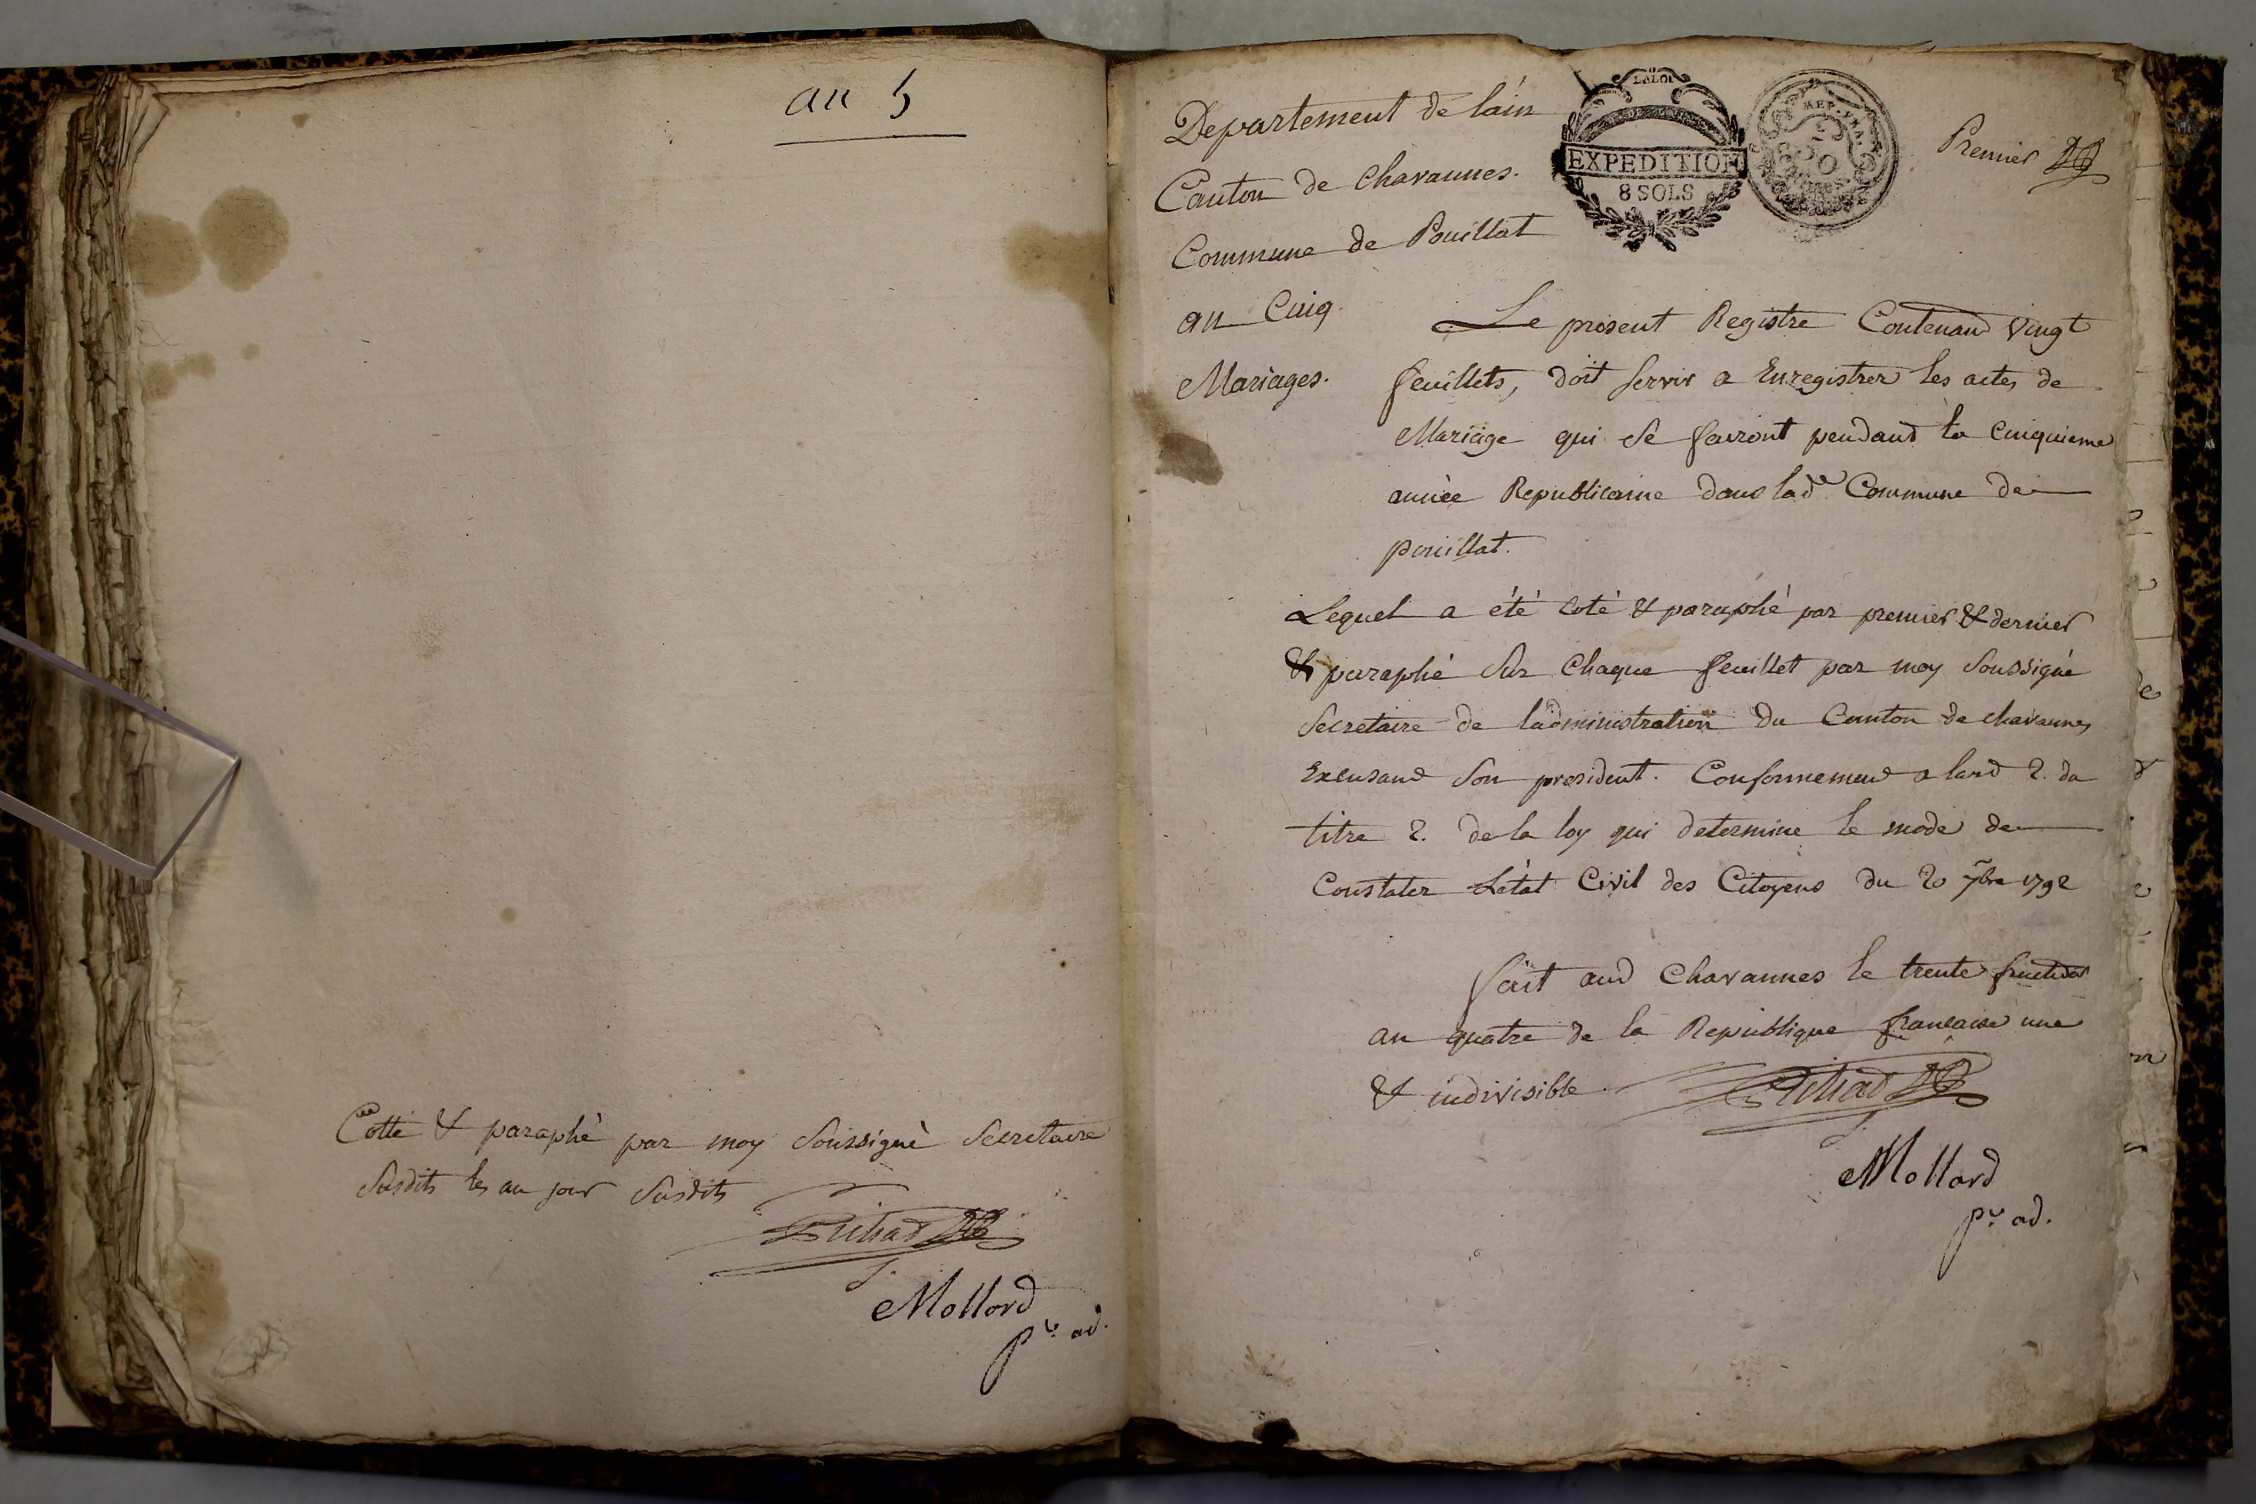 an 5
Cotté & paraphé par moy soussigné Secretaire
Susdits les an jour susdits
Mollard
pt. ad.
Departement de lain
Canton de Chavannes.
Commune de Pouillat
an Cinq.
Mariages.
LA LOI
EXPEDITION
8 SOLS
REP. FRA.
Premier
Le present Registre Contenand vingt
feuillets, doit servir a Enregistrer les actes de
Mariage qui se fairont pendand la Cinquieme
année Republicaine dans lade Commune de
pouillat.
Lequel a été coté & paraphé par premier & dernier
& paraphé sur Chaque feuillet par moy Soussigné
Secretaire de ladministration du Canton de chavannes
Excusand son president. Conformemend a lard 2. du
titre 2. de la loy qui determine le mode de
Constater Létat Civil des Citoyens du 20 7bre 1792
fait aud Chavannes le trente fructidor
an quatre de la Republique francaise une
& indivisible
Mollard
pt. ad.